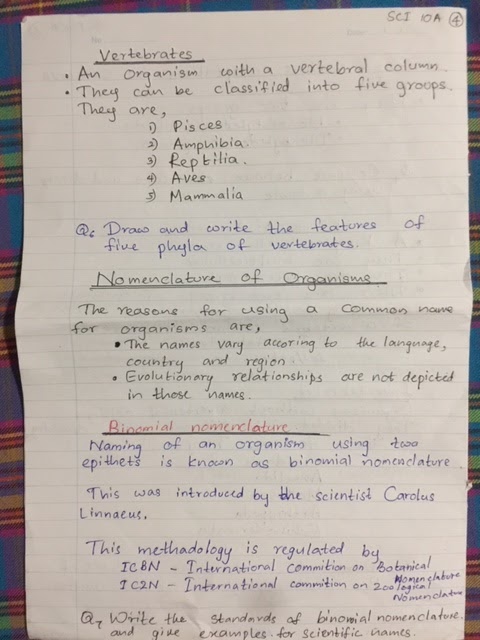 SCI 10A 4
Vertebrates
• An Organism with a vertebral column.
• They can be classified into five groups.
They are,
1) Pisces
2) Amphibia
3) Reptilia.
4) Aves
5) Mammalia
Q6 Draw and write the features of
five phyla of vertebrates.
Nomenclature of Organisms
The reasons for using a common name
for organisms are,
• The names vary accoring to the language,
country and region
• Evolutionary relationships are not depicted
in those names.
Binomial nomenclature
Naming of an organism using two
epithets is known as binomial nomenclature.
This was introduced by the scientist Carolus
Linnaeus.
This methodology is regulated by
ICBN - International Commition on Botanical
Nomenclature
ICZN - International commition on Zoological
Nomenclature
Q7 Write the standards of binomial nomenclature
and give examples for scientific names.